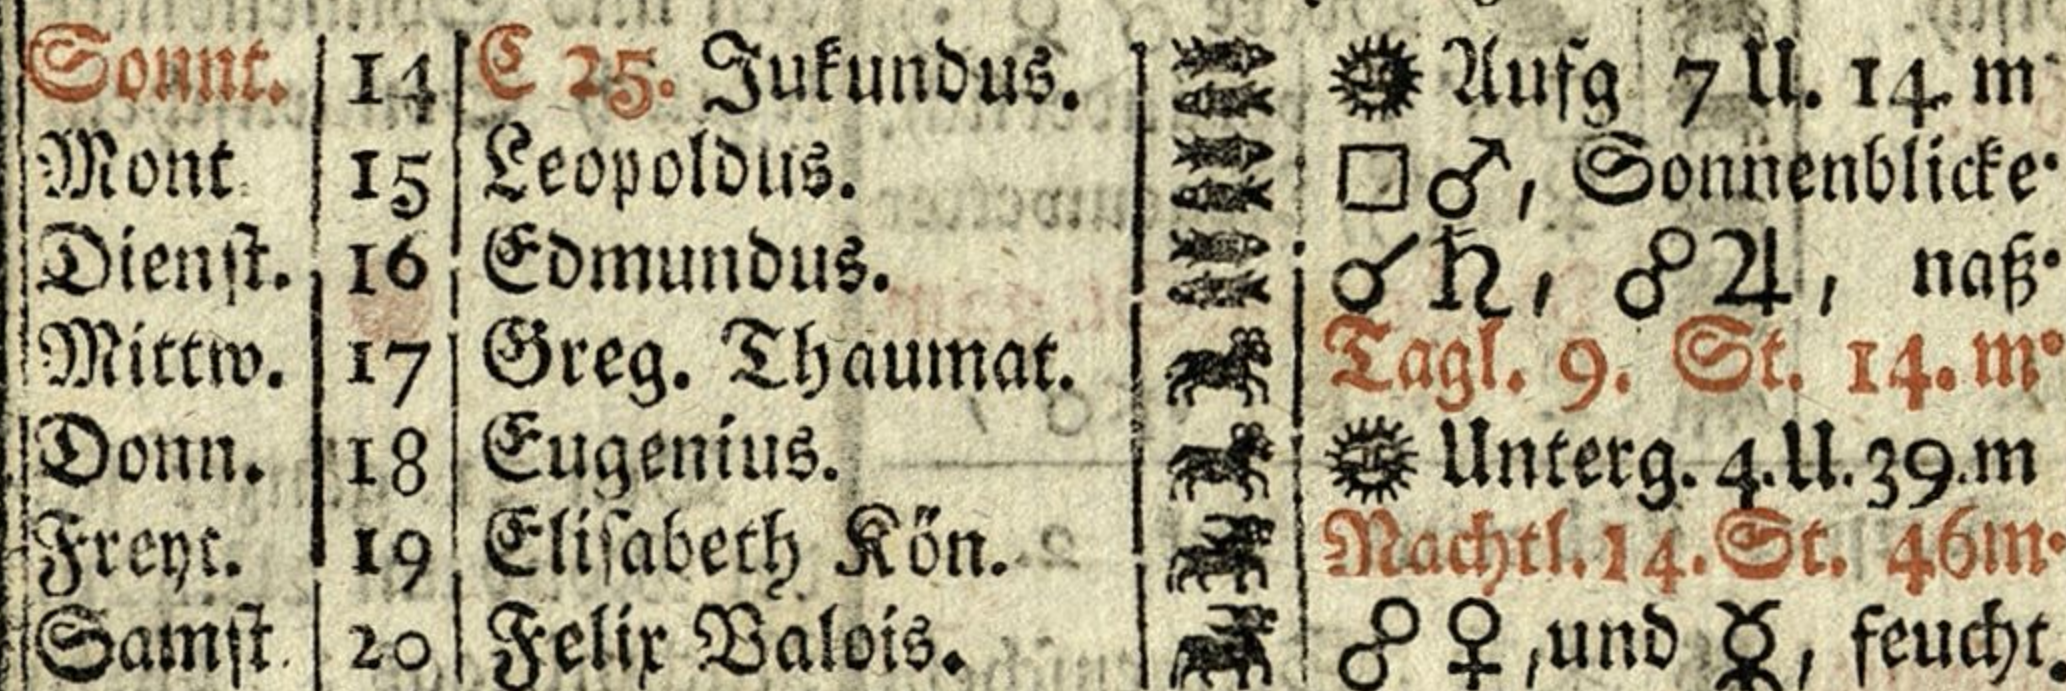 Sonnt. 14 C 25. Jukundus. Aufg 7 U. 14. m
Mont 15 Leopoldus. □ ♂, Sonnenblicke
Dienst. 16 Edmundus. ☌ ♄, ☍ ♃, naß
Mittw. 17 Greg. Thaumat. Tagl. 9. St. 14. m
Donn. 18 Eugenius. Unterg. 4. U. 39. m
Freyt. 19 Elisabeth Kön. Nachtl. 14. St. 46m
Samst. 20 Felix Valois. ☍ ♀, und ☿, feucht.